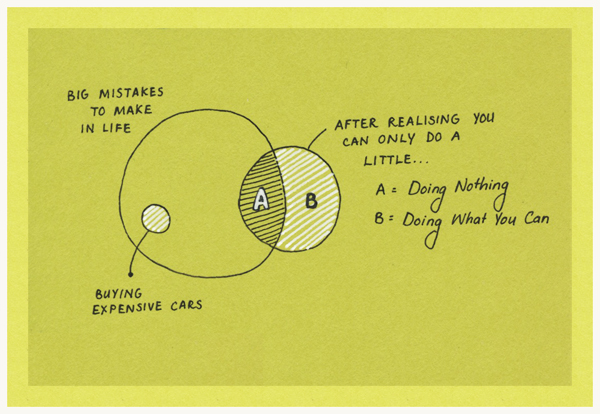 BIG MISTAKES
TO MAKE
IN LIFE
AFTER REALISING YOU
CAN ONLY DO A
LITTLE...
A
B
A = Doing Nothing
B = Doing What You Can
BUYING
EXPENSIVE CARS